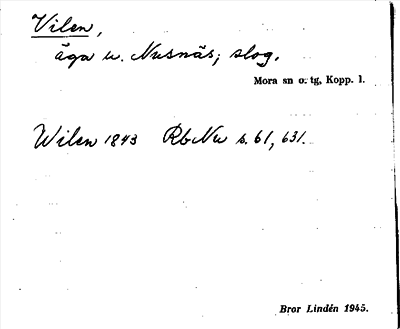 Vilen,
äga u. Nusnäs; slog.
Mora sn o. tg, Kopp. l.
Wilen 1843 RbNu s. 61, 631.
Bror Lindén 1945.